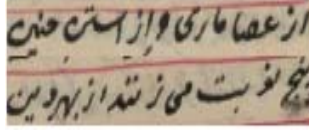 از عصا ماری و از استن حنین
پنج نوبت می زنند از بهر دین